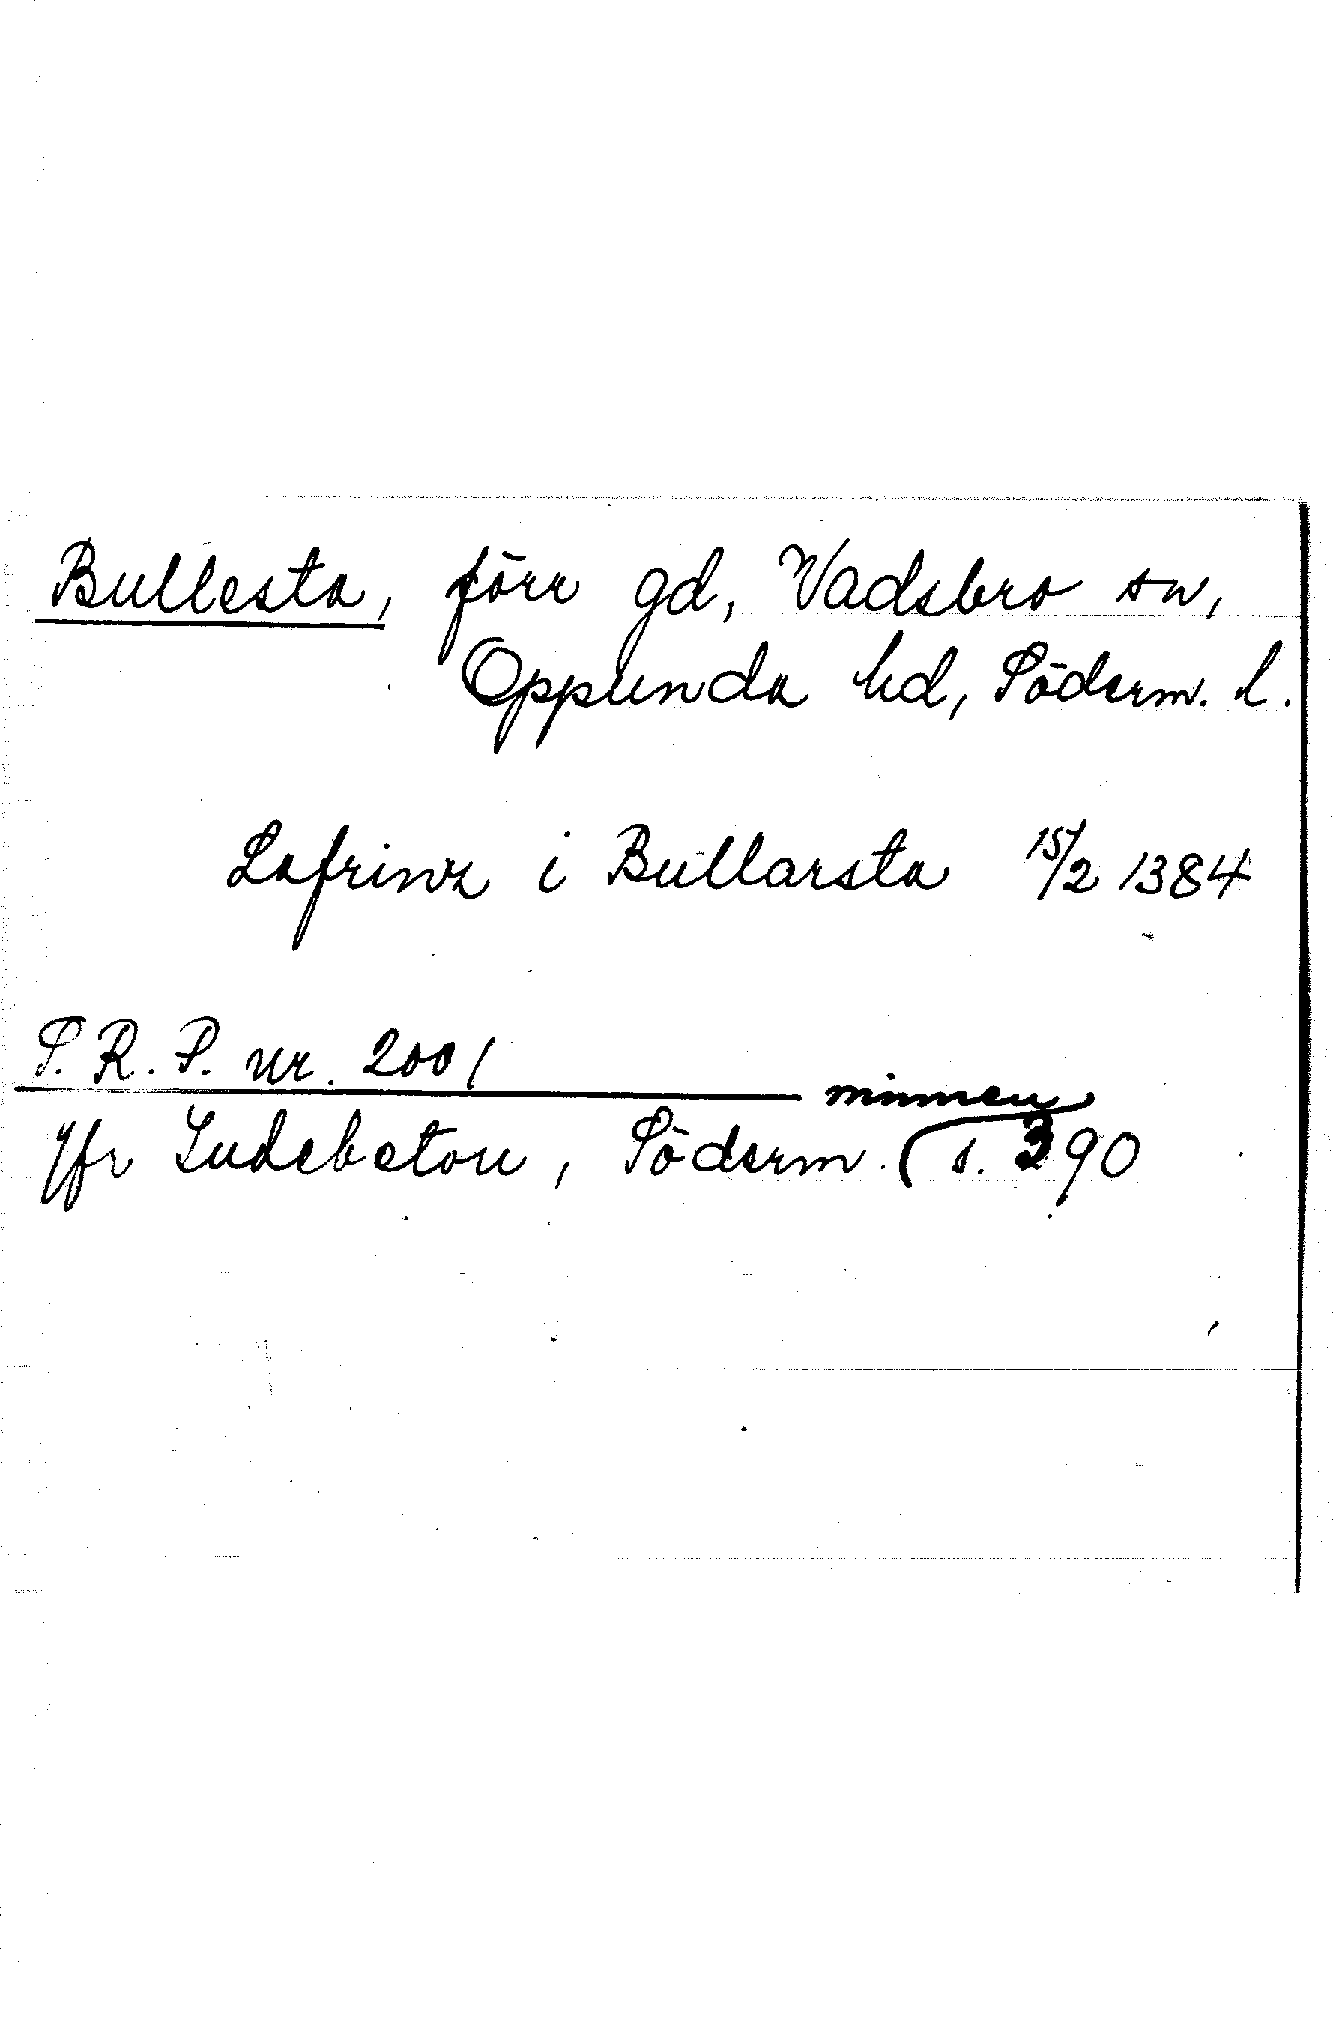 Bullesta, förr gd, Vadsbro sn,
Oppunda hd, Söderm. l.
Lafrinz i Bullarsta 15/2 1384
S. R. P. nr. 2001
minnen
Jfr Ludebeton, Söderm. s. 390